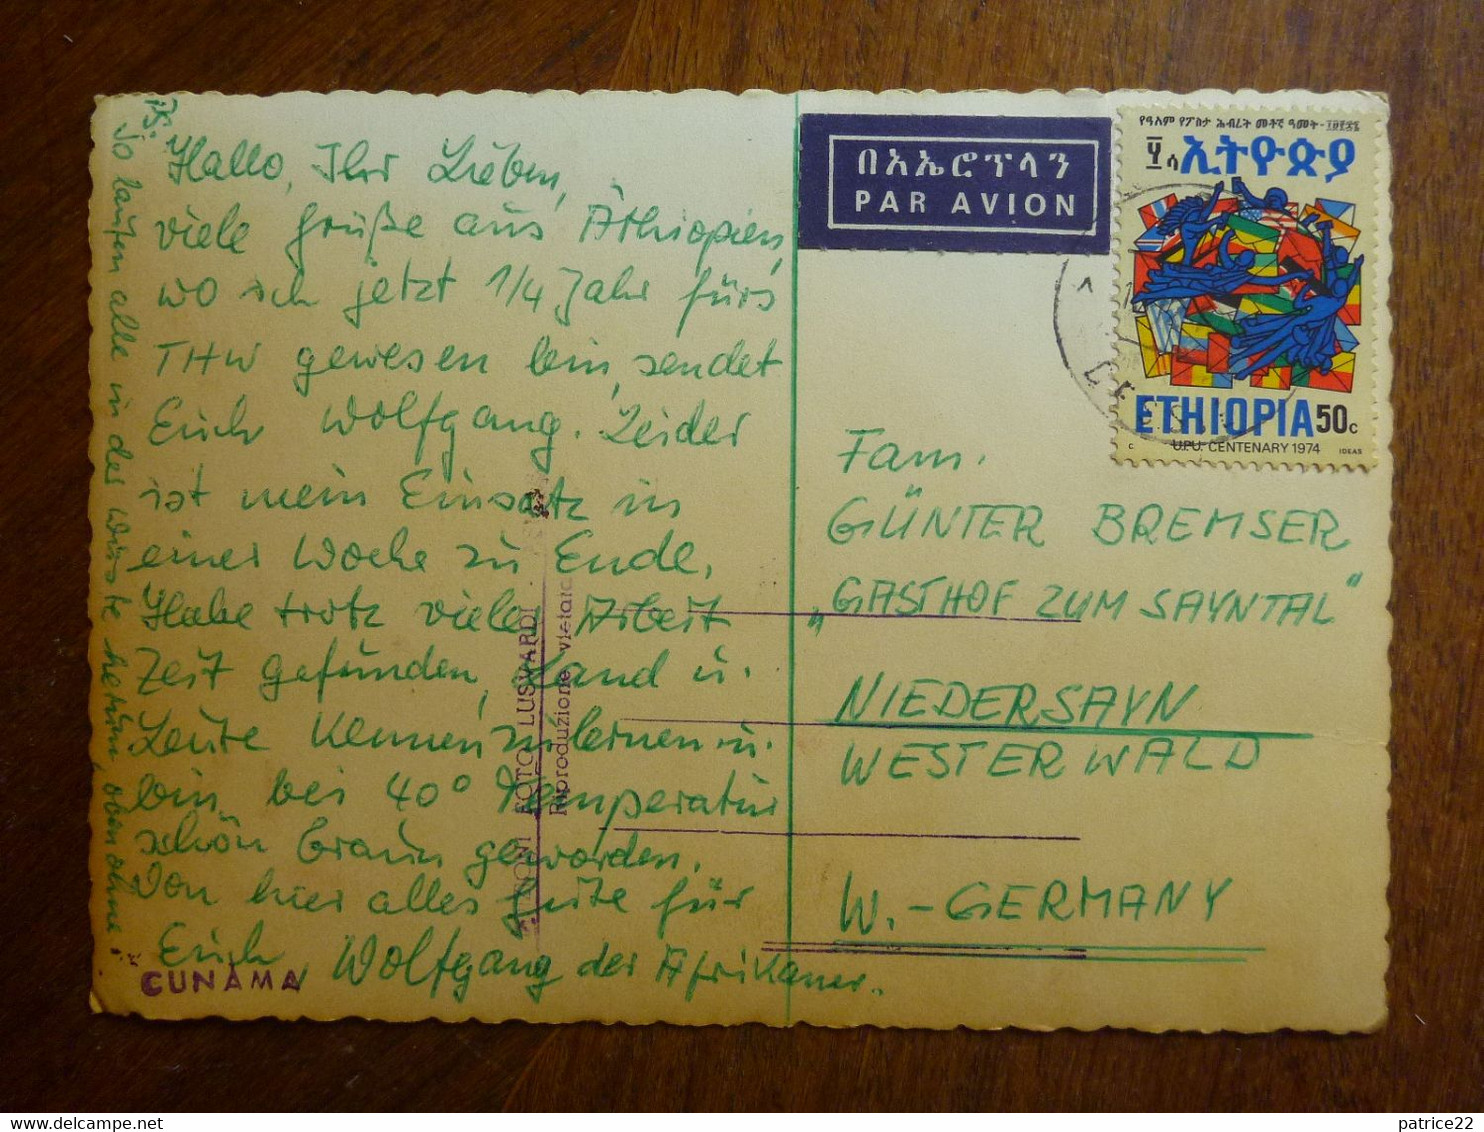 PS.
So laufen alle in der Wüste herum, oben ohne!
Hallo, Ihr Lieben,
viele Grüße aus Äthiopien,
wo ich jetzt 1/4 Jahr fürs
THW gewesen bin, sendet
Euch Wolfgang. Leider
ist mein Einsatz in
einer Woche zu Ende.
Habe trotz vieler Arbeit
Zeit gefunden, Land u.
Leute kennenzulernen u.
bin bei 40° Temperatur
schön braun geworden.
Von hier alles Gute für
Euch, Wolfgang der Afrikaner.
CUNAMA
FOTO LUSVARDI
Riproduzione vietata
በአኤሮፕላን
PAR AVION
የዓለም የፖስታ ሕብረት መቶኛ ዓመት
ሳ ኢትዮጵያ
ETHIOPIA 50c
C U.P.U. CENTENARY 1974 IDEAS
Fam.
GÜNTER BREMSER
„GASTHOF ZUM SAYNTAL"
NIEDERSAYN
WESTERWALD
W.-GERMANY
patrice22